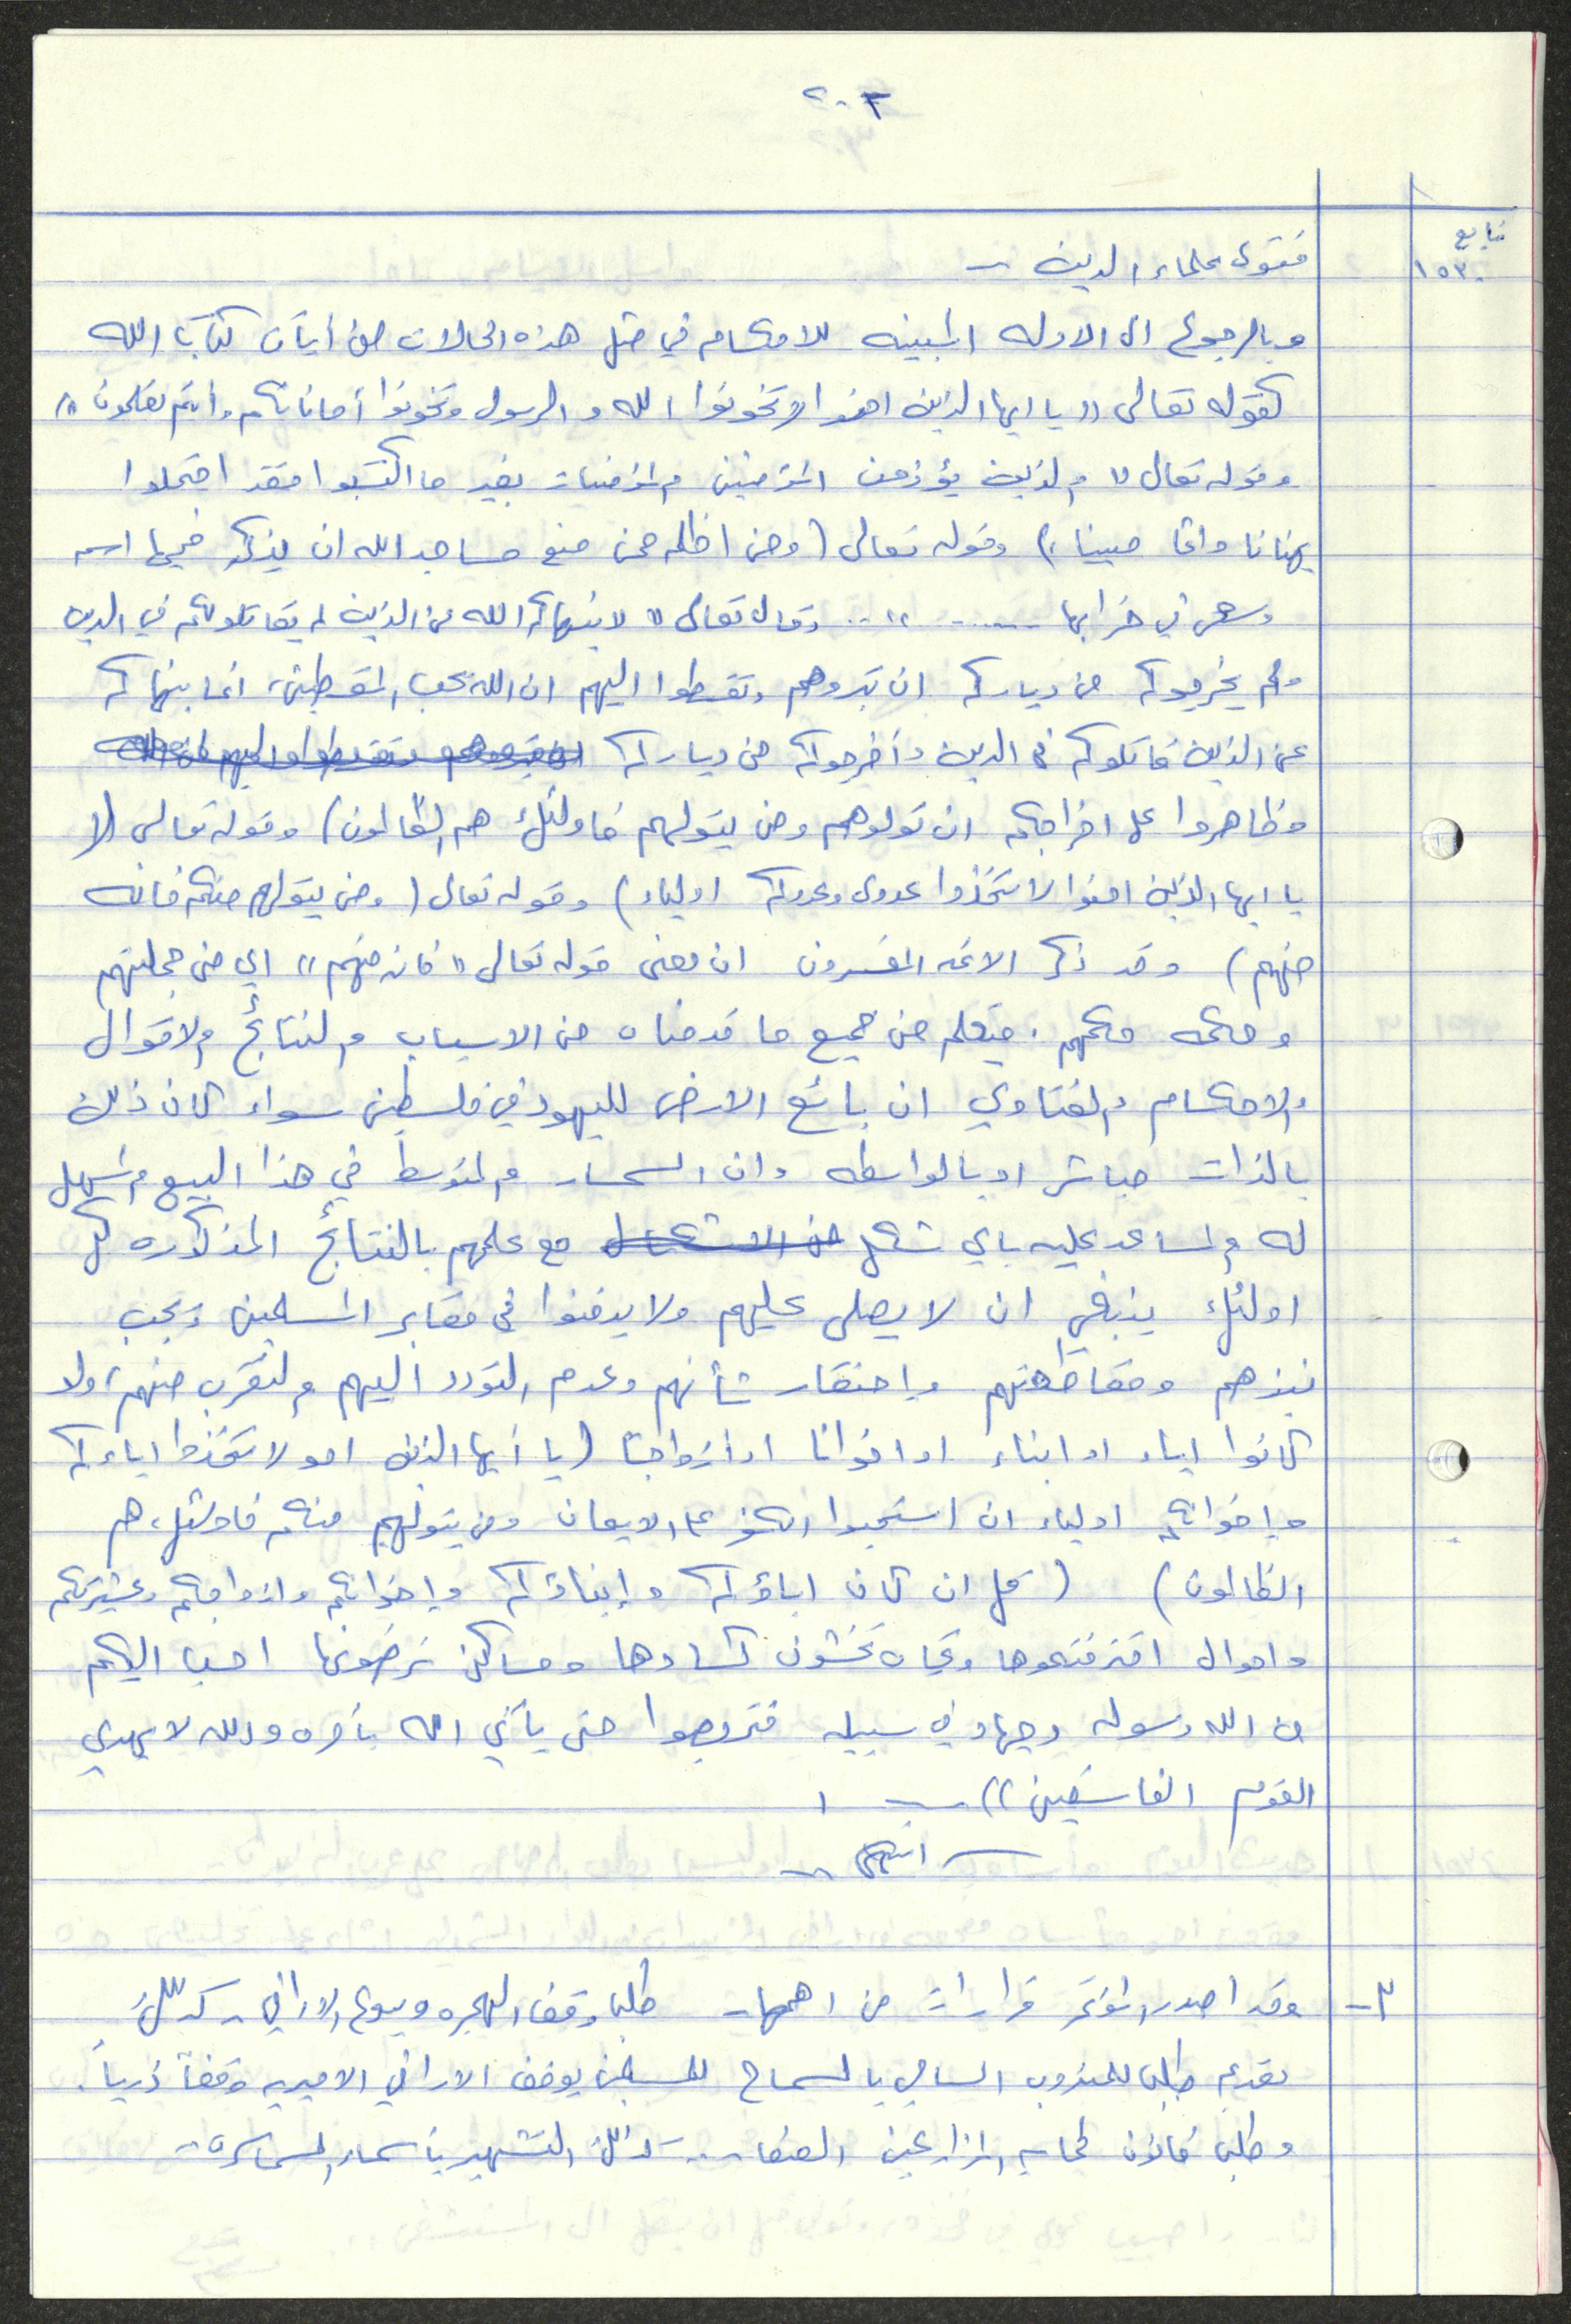 ٢٠٣
تابع
١٥٣٠
فتوى علماء الدين -
وبالرجوع الى الادله المبينه للاحكام في مثل هذه الحالات من أيات كتاب الله
كقوله تعالى «يا ايها الذين امنوا لا تخونوا الله والرسول وتخونوا أماناتكم وأنتم تعلمون»
وقوله تعالى «والذين يؤذون المؤمنين والمؤمنات بغير ما اكتسبوا فقد احتملوا
بهتانا واثما مبينا») وقوله تعالى (ومن اظلم ممن منع مساجد الله ان يذكر فيها اسمه
وسعى في خرابها ...... » .. وقال تعالى «لا ينهاكم الله عن الذين لم يقاتلوكم في الدين
ولم يخرجوكم من دياركم ان تبروهم وتقسطوا اليهم ان الله يحب المقسطين، انما ينهاكم
عن الذين قاتلوكم في الدين وأخرجوكم من دياركم ان تبروهم وتقسطوا اليهم ان الله
وظاهروا على اخراجكم ان تولوهم ومن يتولهم فاولئك هم الظالمون) وقوله تعالى (لا
يا ايها الذين امنوا لا تتخذوا عدوى وعدوكم اولياء) وقوله تعالى (ومن يتولهم منكم فانه
منهم) وقد ذكر الائمه المفسرون ان معنى قوله تعالى «فانه منهم» اي من جملتهم
وحكمه حكمهم. فيعلم من جميع ما قدمناه من الاسباب والنتائج والاقوال
والاحكام والفتاوي ان بائع الارض لليهود في فلسطين سواء كان ذلك
بالذات مباشر او بالواسطه وان السمسار والمتوسط في هذا البيع والمسهل
له والمساعد عليه باي شكل مع علمهم بالنتائج المذكوره كل
اولئك ينبغي ان لا يصلى عليهم ولا يدفنوا في مقابر المسلمين ويجب
نبذهم ومقاطعتهم واحتقار شأنهم وعدم التودد اليهم والتقرب منهم، ولو
كانوا اباء او ابناء او اخوانا او أزواجا (يا أيها الذين امنو لا تتخذوا اباءكم
وإخوانكم اولياء ان استحبوا الكفر على الايمان ومن يتولهم منكم فاولئك هم
الظالمون) (قل ان كان اباؤكم وإبناؤكم وإخوانكم وازواجكم وعشيرتكم
واموال اقترفتموها وتجاره تخشون كسادها ومساكن ترضونها احب اليكم
من الله ورسوله وجهاد في سبيله فتربصوا حتى يأتي الله بأمره والله لا يهدي
القوم الفاسقين»)
انتهى
٣- وقد اصدر المؤتمر قرارات من اهمها- طلب وقف الهجره وبيوع الاراضي- كذلك
تقديم طلب للمندوب السامي بالسماح للمسلمين بوقف الاراضي الاميريه وقفاً ذرياً.
وطلب قانون لحمايه المزارعين الصغار.. كذلك التشهير بأسماء السماسره..